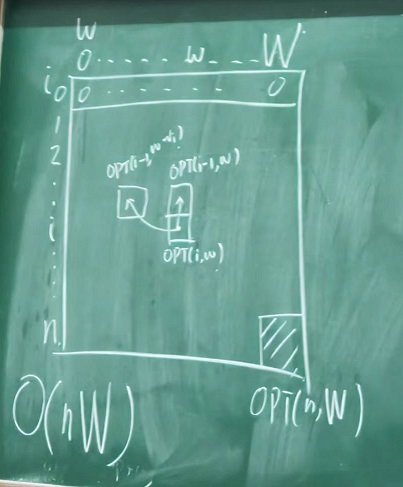 w
0 . . . . . w . . . W
i 0 0 . . . . . . 0
1
2
OPT(i-1, w-wi) OPT(i-1, w)
i
OPT(i,w)
n
O(nW) OPT(n,W)